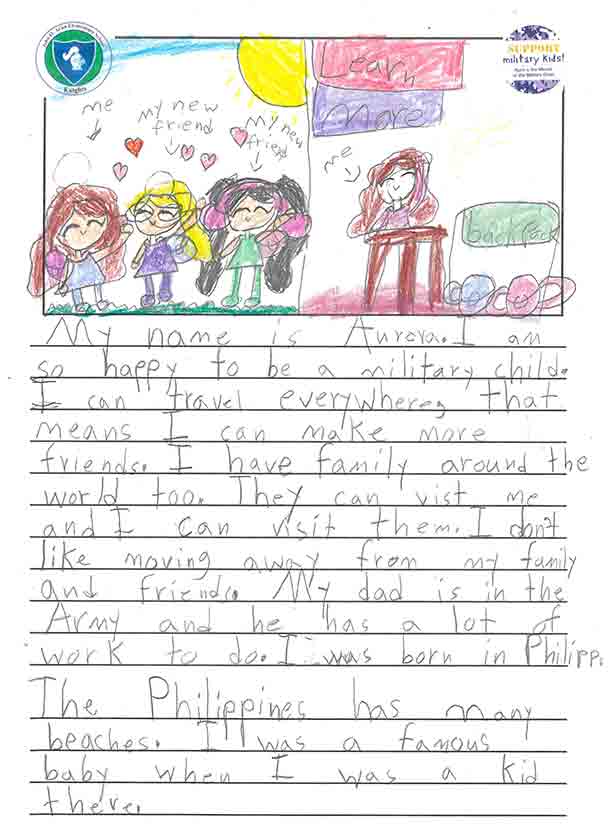 Elementary School
Knights
SUPPORT
military Kids!
April is the Month
of the Military Child
me
my new
friend
my new
friend
Learn
More
me
backpack
My name is Aurora. I am
so happy to be a military child.
I can travel everywhere, that
means I can make more
friends. I have family around the
world too. They can vist me
and I can visit them. I don't
like moving away from my family
and friends. My dad is in the
Army and he has a lot of
work to do. I was born in Philipp.
The Philippines has many
beaches. I was a famous
baby when I was a kid
there.